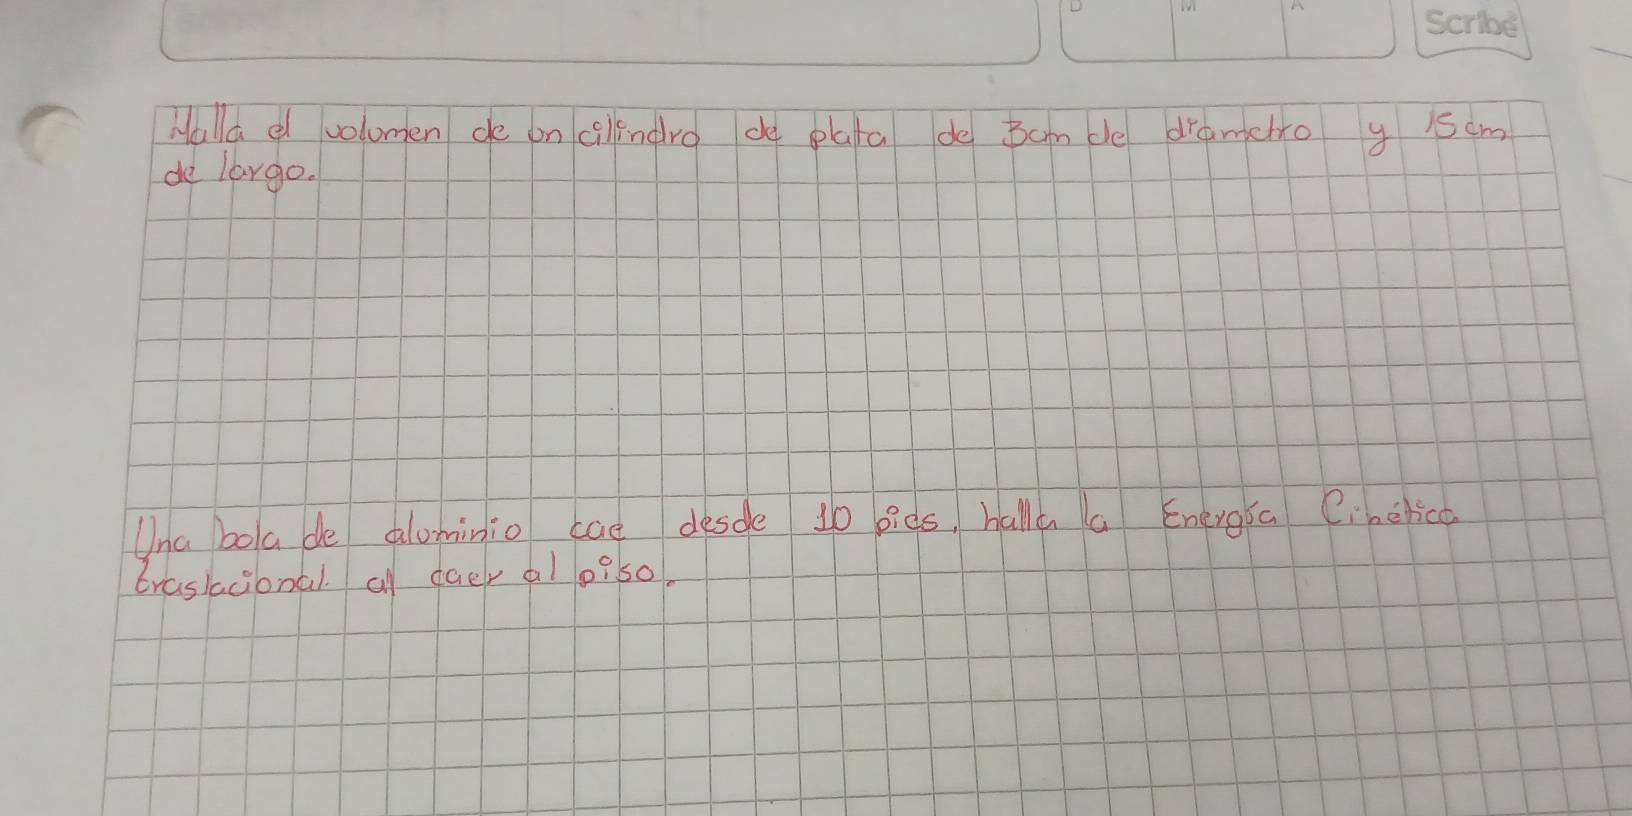 D M A Scribe
Halla el volumen de un cilindro de plata de 3cm de diametro y 15 cm
de largo.
Una bola de aluminio cae desde 10 pies, halla la Energía Cinética
traslacional. al caer al piso.